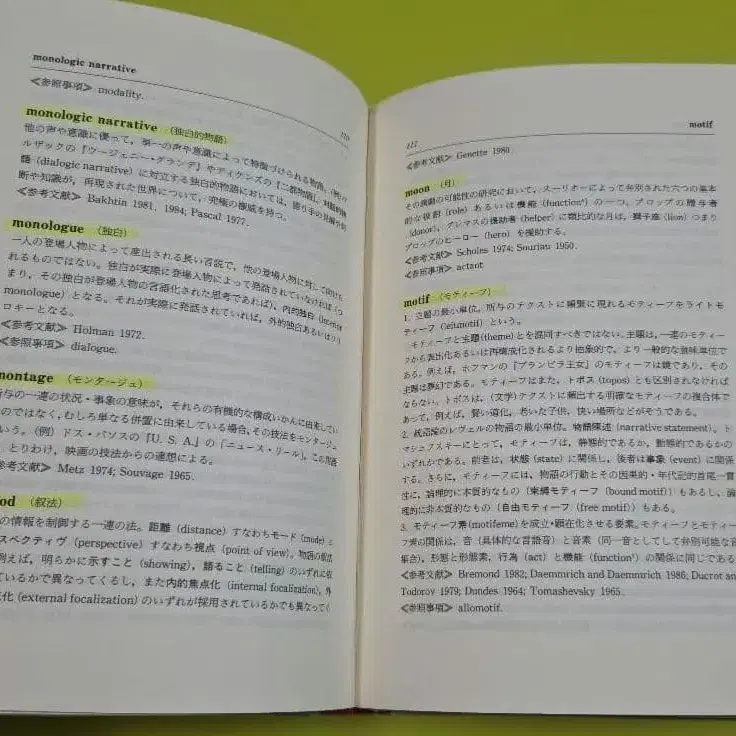 monologic narrative
≪参照事項≫ modality.
110
monologic narrative （独白的物語）
他の声や意識に優って，単一の声や意識によって特徴づけられる物語。(例)バ
ルザックの『ウージェニー・グランデ』やディケンズの『二都物語』。対話的物
語 (dialogic narrative) に対立する独白的物語においては，語り手の見解や判
断や知識が，再現された世界について，究極の権威を持つ。
≪参考文献≫ Bakhtin 1981, 1984; Pascal 1977.
monologue （独白）
一人の登場人物によって産出される長い言説で，他の登場人物に対して向けら
れるものではない。独白が実際に登場人物によって発話されていなければ（つ
まり，その独白が登場人物の言語化された思考であれば），内的独白 (interior
monologue) となる。それが実際に発話されていれば，外的独白あるいは
ロキーとなる。
≪参考文献≫ Holman 1972.
≪参照事項≫ dialogue.
montage （モンタージュ）
所与の一連の状況・事象の意味が，それらの有機的な構成いかんに由来してい
のではなく，むしろ単なる併置に由来している場合，その技法をモンタージュ
いう。(例) ドス・パソスの『U. S. A.』の「ニュース・リール」。この用語
，とりわけ，映画の技法からの連想による。
参考文献≫ Metz 1974; Souvage 1965.
od （叙法）
の情報を制御する一連の法。距離 (distance) すなわちモード (mode) と
スペクティヴ (perspective) すなわち視点 (point of view)。物語の叙法
例えば，明らかに示すこと (showing)，語ること (telling) のいずれに依
ているかで異なってくるし，また内的焦点化 (internal focalization)，外
化 (external focalization) のいずれが採用されているかでも異なってく
111
motif
≪参考文献≫ Genette 1980.
moon （月）
その演劇の可能性の研究において，スーリオーによって弁別された六つの基本
的な役割 (role) あるいは機能 (function⁴) の一つ。プロップの贈与者
(donor)，グレマスの援助者 (helper) に類比的な月は，獅子座 (lion) つまり
プロップのヒーロー (hero) を援助する。
≪参考文献≫ Scholes 1974; Souriau 1950.
≪参照事項≫ actant.
motif （モティーフ）
1. 主題の最小単位。所与のテクストに頻繁に現れるモティーフをライトモ
ティーフ (leitmotif) という。
モティーフと主題 (theme) とを混同すべきではない。主題は，一連のモティー
フから表出化あるいは再構成化されるより抽象的で，より一般的な意味単位で
ある。例えば，ホフマンの『ブランビラ王女』のモティーフは鏡であり，その
主題は夢幻である。モティーフはまた，トポス (topos) とも区別されなければ
ならない。トポスは，（文学）テクストに頻出する明確なモティーフの複合体で
あって，例えば，賢い道化，老いた子供，快い場所などがそうである。
2. 統語論のレヴェルの物語の最小単位。物語陳述 (narrative statement)。ト
マシェフスキーにとって，モティーフは，静態的であるか，動態的であるかの
いずれかである。前者は，状態 (state) に関係し，後者は事象 (event) に関係
する。さらに，モティーフには，物語の行動とその因果的・年代記的首尾一貫
性に，論理的に本質的なもの（束縛モティーフ (bound motif)）もあるし，論
理的に非本質的なもの（自由モティーフ (free motif)）もある。
3. モティーフ素 (motifeme) を成立・顕在化させる要素。モティーフとモティー
フ素の関係は，音（具体的な言語音）と音素（同一音としてして弁別可能な音
集合），形態と形態素，行為 (act) と機能 (function¹) の関係に同じである
≪参考文献≫ Bremond 1982; Daemmrich and Daemmrich 1986; Ducrot an
Todorov 1979; Dundes 1964; Tomashevsky 1965.
≪参照事項≫ allomotif.